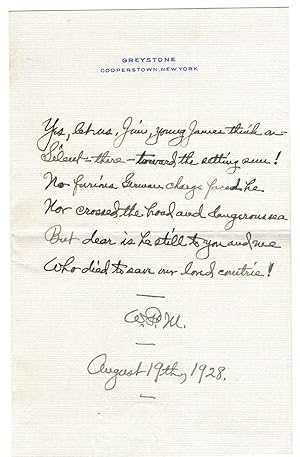 GREYSTONE
COOPERSTOWN, NEW YORK
Yes, let us, Jim, young James think on
Silent – there – toward the setting sun!
No furious German charge faced he
Nor crossed the broad and dangerous sea
But dear is he still to you and me
Who died to save our loved countrie!
W. M.
August 19th, 1928.